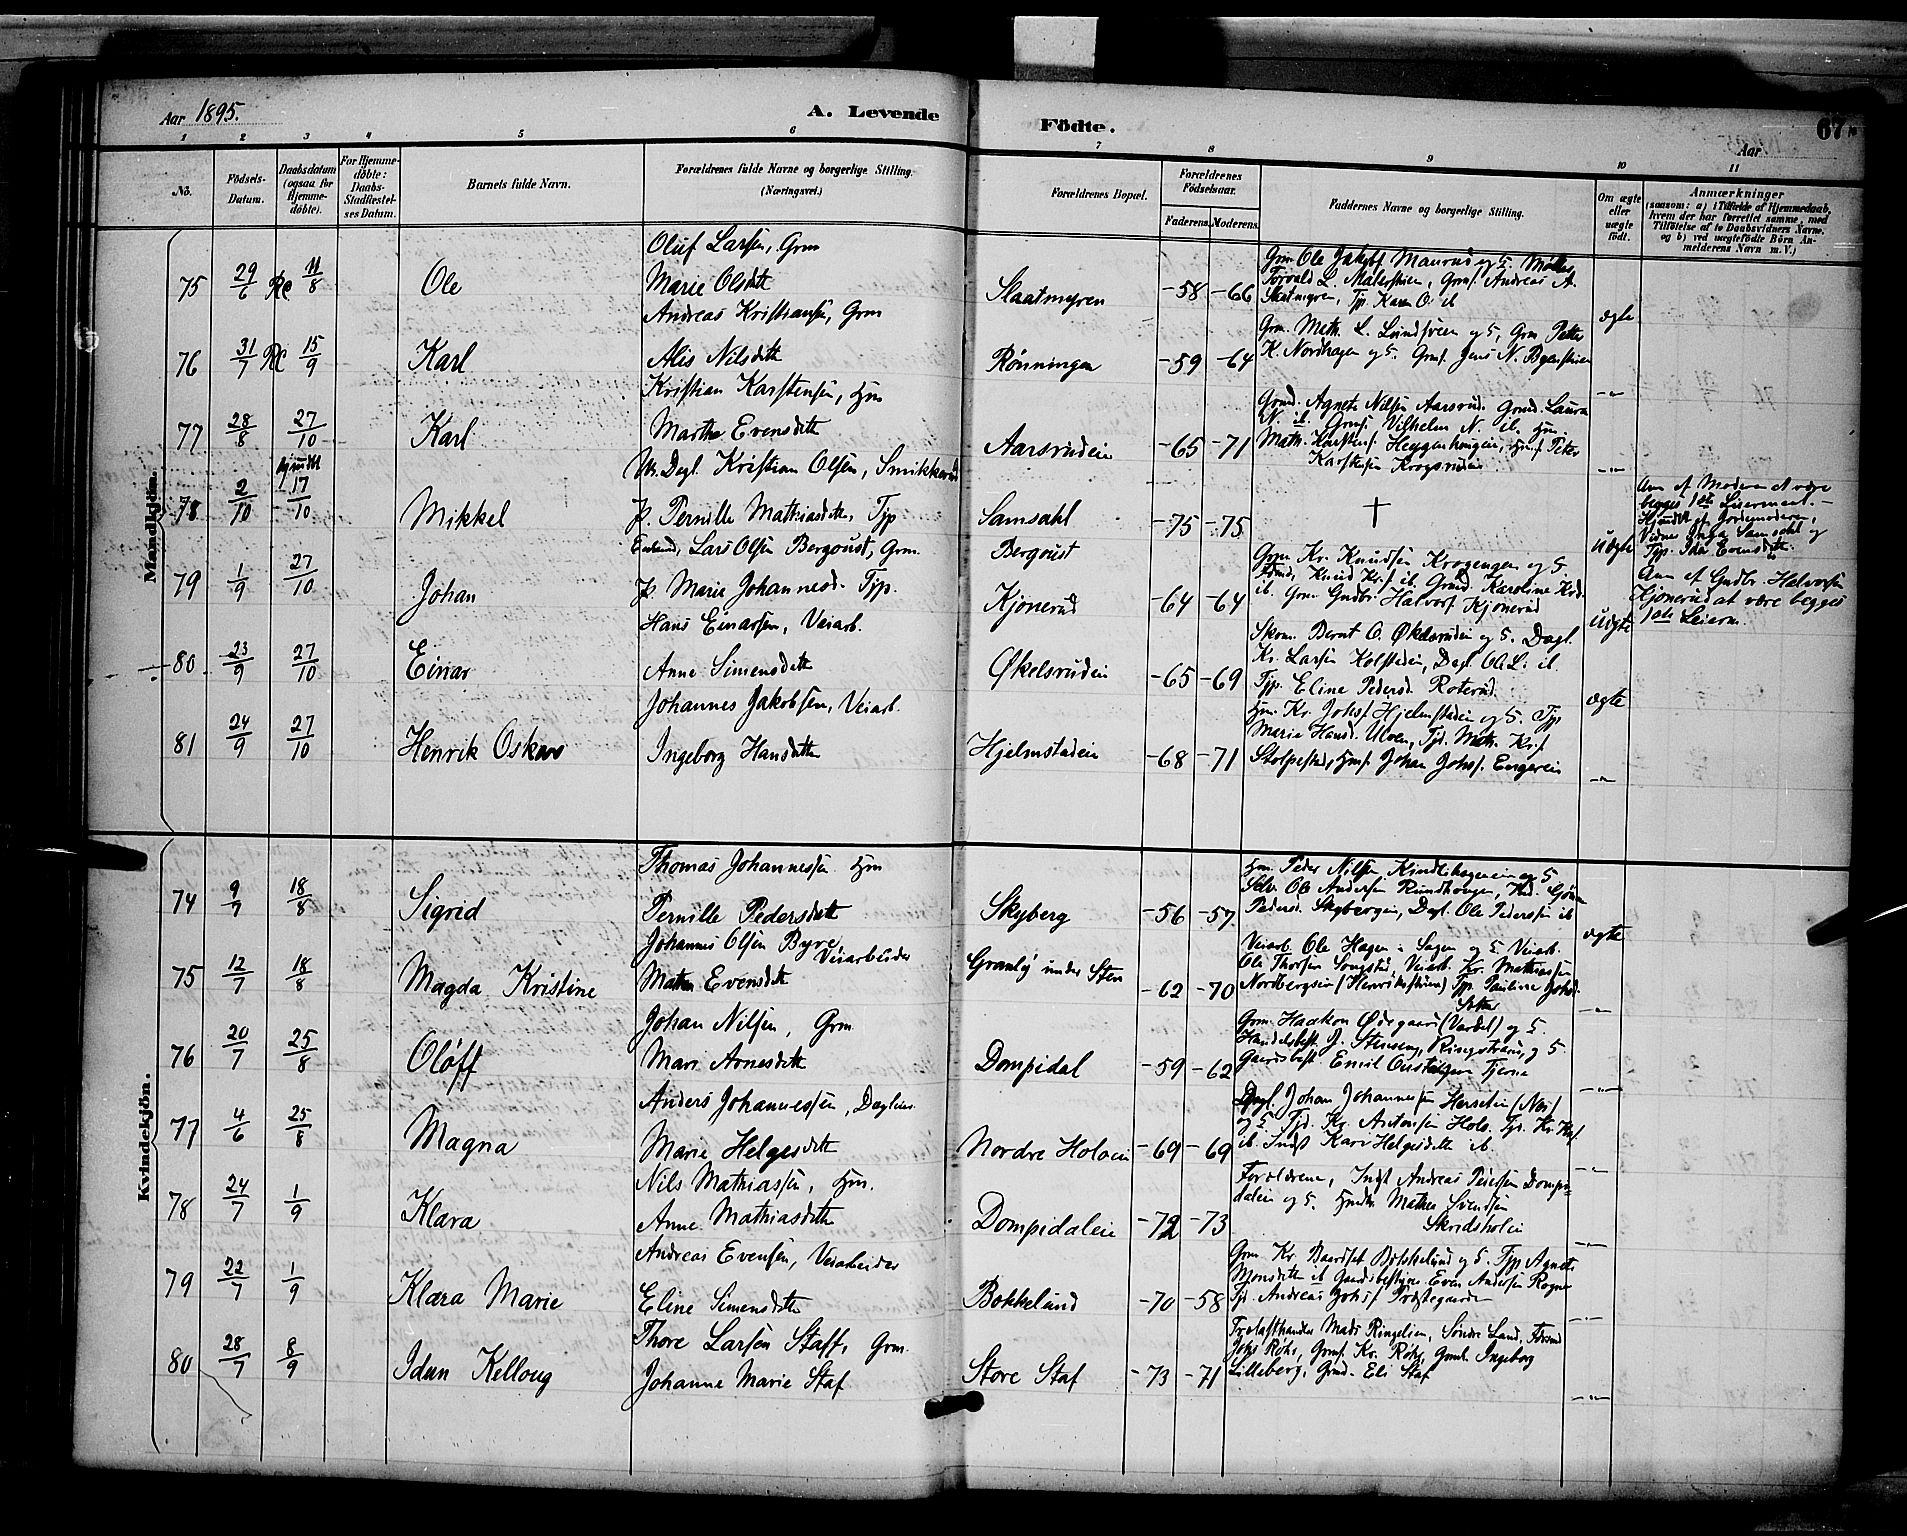 Aar 1895.
A. Levende
Födte.
67
Aar
1 2 3 4 5 6 7 8 9 10 11
No.
Födsels-
Datum.
Daabsdatum
(ogsaa for
Hjemme-
döbte).
For Hjemme-
döbte:
Daabs-
Stadfæstel-
ses Datum.
Barnets fulde Navn.
Forældrenes fulde Navne og borgerlige Stilling.
(Næringsvei.)
Forældrenes Bopæl.
Forældrenes
Födselsaar.
Faderens. Moderens.
Faddernes Navne og borgerlige Stilling.
Om ægte
eller
uægte
födt.
Anmærkninger
(saasom: a) i Tilfælde af Hjemmedaab,
hvem der har forrettet samme, med
Tilföielse af to Daabsvidners Navne,
og b) ved uægtefödte Börn An-
melderens Navn m. V.)
Mandkjön.
75 29/6 11/8 Ole
Oluf Larsen, Grm
Marie Olsdtt
Slaatmyren -58 -66
Grm. Ole Jakobs. Maurud og 5.
Slaatmyren, Tjp. Karen O. ib
ægte
76 31/7 15/9 Karl
Andreas Kristiansen, Grm
Alis Nilsdtt
Rönningen -59 -64
Grm. Math. L. Lundsveen og 5, Grm Petter
K. Nordhagen og 5. Grmf. Jens N.
—"—
77 28/8 27/10 Karl
Kristian Karstensen, Hm
Marthe Evensdtt
Aarsrudeie -65 -71
Grmd. Agnete Nilsen Aarsrud. Grmd. Laura
N. ib. Grmf. Vilhelm N. ib, Hm.
Math. Karstens. Heggenhaugen, Hmf Peter
Karstensen Krogsrudeie
—"—
78 2/10 hjmdbt 17/10 Mikkel
Ux. Dagl. Kristian Olsen, Smikkerud
P. Pernille Mathiasdtt, Tjp
Samsahl -75 -75
†
uægte
Anm af Moderen at være
begges 1ste Leiermaal. –
Hjmdbt af Jordemoderen,
Vidner Inga Samsahl og
Tjp. Ida Evensdtt.
79 1/9 27/10 Johan
Enkemd. Lars Olsen Bergoust, Grm.
P. Marie Johannesd. Tjp.
Bergoust
Kjönerud -64 -64
Grm Kr. Knudsen Krogengen og 5
Knud Kr.s ib. Grmd Karoline Krd.
ib. Grm Gudbr. Halvors. Kjönerud
uægte
Anm af Gudbr. Halvorsen
Kjönerud at være begges
1ste Leierm.
80 23/9 27/10 Einar
Hans Einarsen, Veiarb.
Anne Simensdtt
Økelsrudeie -65 -69
Skom. Bernt O. Økelsrudeie og 5. Dagl.
Kr. Larsen Kolstadeie, Dagl. Ole L. ib.
Tjp. Eline Pedersd. Roterud.
ægte
81 24/9 27/10 Henrik Oskar
Johannes Jakobsen, Veiarb.
Ingeborg Hansdtt
Hjelmstadeie -68 -71
Hm. Kr. Johs. Hjelmstadeie og 5. Tjp
Marie Hansd. Ulven, Tjd. Math. Kr.s
Stolpestad, Hmf. Johan Johs. Engereie
—"—
Kvindekjön.
74 9/7 18/8 Sigrid
Thomas Johannessen Hm
Pernille Pedersdtt
Skyberg -56 -57
Hm. Peder Nilsen, Kindlihageneie og 5
Selv. Ole Andersen Rundhaugen,
Pedersd. Skybergeie, Dagl. Ole Pedersen ib
ægte
75 12/7 18/8 Magda Kristine
Johannes Olsen Byre
Veiarbeider
Mathea Evensdtt
Granly under Sten -62 -70
Veiarb. Ole Hagen i Sagen og 5 Veiarb.
Ole Thorsen Songstad, Veiarb. Kr. Mathiassen
Nordbergseie (Henriksstuen) Tjp. Pauline Johsd.
—"—
76 20/7 25/8 Olöff
Johan Nilsen, Grm.
Mari Arnesdtt
Dompidal -59 -62
Grm Haakon Ødegaard (Vardal) og 5.
Handelsbest. J. Stenseng, Ringstrøm, og 5
Gaardsbest. Emil Tjerne
—"—
77 4/6 25/8 Magna
Anders Johannessen, Dagleier.
Marie Helgesdtt
Nordre Holoeie -69 -69
Dagl. Johan Johannessen Herseteie (Nes)
og 5 Tjd. Kr. Antonsen Holo. Tjp. Kr.
ib. Indst Kari Helgesdtt ib.
—"—
78 24/7 1/9 Klara
Nils Mathiassen, Hm.
Anne Mathiasdtt
Dompidaleie -72 -73
Forældrene, Indst Andreas Pedersen Dompi-
daleie og 5. Mathea Svendsen
Skridsholeie
—"—
79 22/7 1/9 Klara Marie
Andreas Evensen, Veiarbeider
Eline Simensdtt
Bokkelund -70 -58
Grm Kr. Baardset Bokkelund og 5. Tjp Agnete
Monsdtt ib Gaardsbestyrer Even Andersen Rogne
Tjd. Andreas Johs. Præstegaarden
—"—
80 28/7 8/9 Idun Kelloug
Thore Larsen Staff, Grm.
Johanne Marie Staf
Store Staf -73 -71
Trelasthandler Mads Ringelien, Søndre Land,
Johs Røhr, Grmf. Kr. Røhr, Grmk. Ingeborg
Lilleberg, Grmd. Eli Staf
—"—